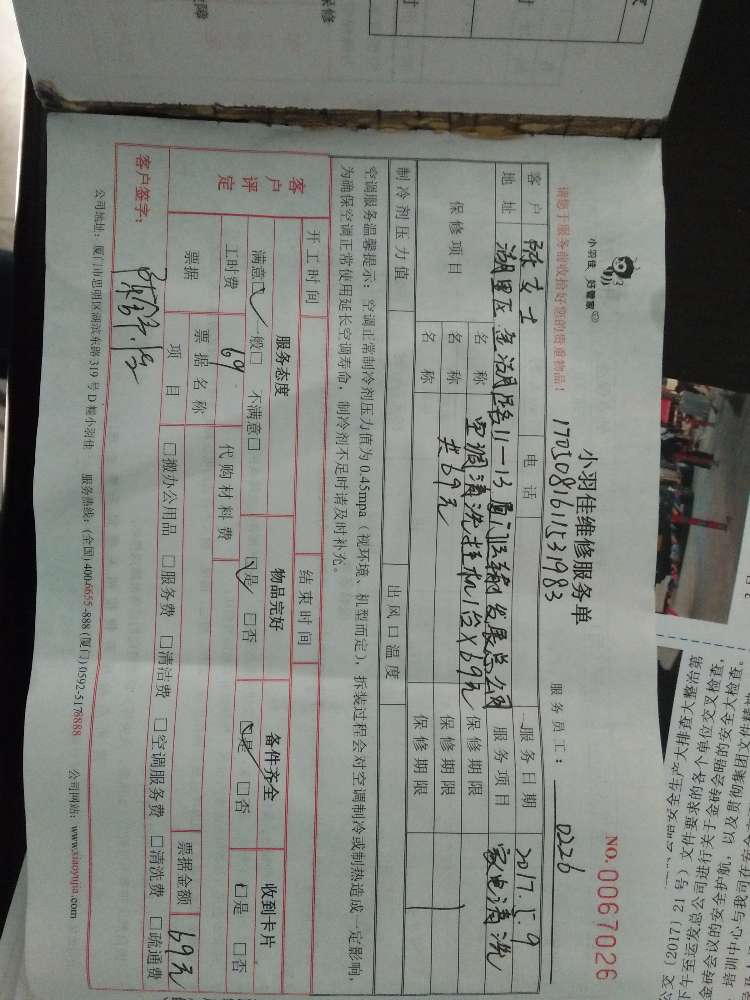 保修
障
小羽佳 好管家
小羽佳维修服务单
NO. 0067026
170508161153 1983
服务员工: 0226
请您于服务前收拾好您的贵重物品!
客 户 女士 电 话 服务日期 2017.5.9
地 址 湖里区 金湖路11-13厦门运输发展总公司 服务项目 家电清洗
保修项目 名 称 空调清洗挂机1台×69元 保修期限
名 称 共69元 保修期限
名 称 保修期限
制冷剂压力值 出风口温度
空调服务温馨提示:空调正常制冷剂压力值为0.45mpa(视环境、机型而定),拆装过程会对空调制冷或制热造成一定影响,
为确保空调正常使用延长空调寿命,制冷剂不足时请及时补充。
开工时间 结束时间
客户评定 服务态度 物品完好 备件齐全 收到卡片
满意☑ 一般□ 不满意□ ☑是 □否 ☑是 □否 □是 □否
工时费 69 代购材料费
票据 票据名称 票据金额 69元
项 目 □搬办公用品 □服务费 □清洁费 □空调服务费 □清洗费 □疏通费
客户签字:
公司地址:厦门市思明区湖滨东路319号D幢小羽佳 服务热线:(全国)400-6655-888 (厦门)0592-5178888 公司网站:www.xiaoyujia.com
安全生产大排查大整治第
公交(2017)21号)文件要求的各个单位交叉检查,
下午至运发总公司进行关于金砖会晤的安全大检查。
金砖会议的安全护航,以及贯彻集团文件精神
培训中心与我司在安全